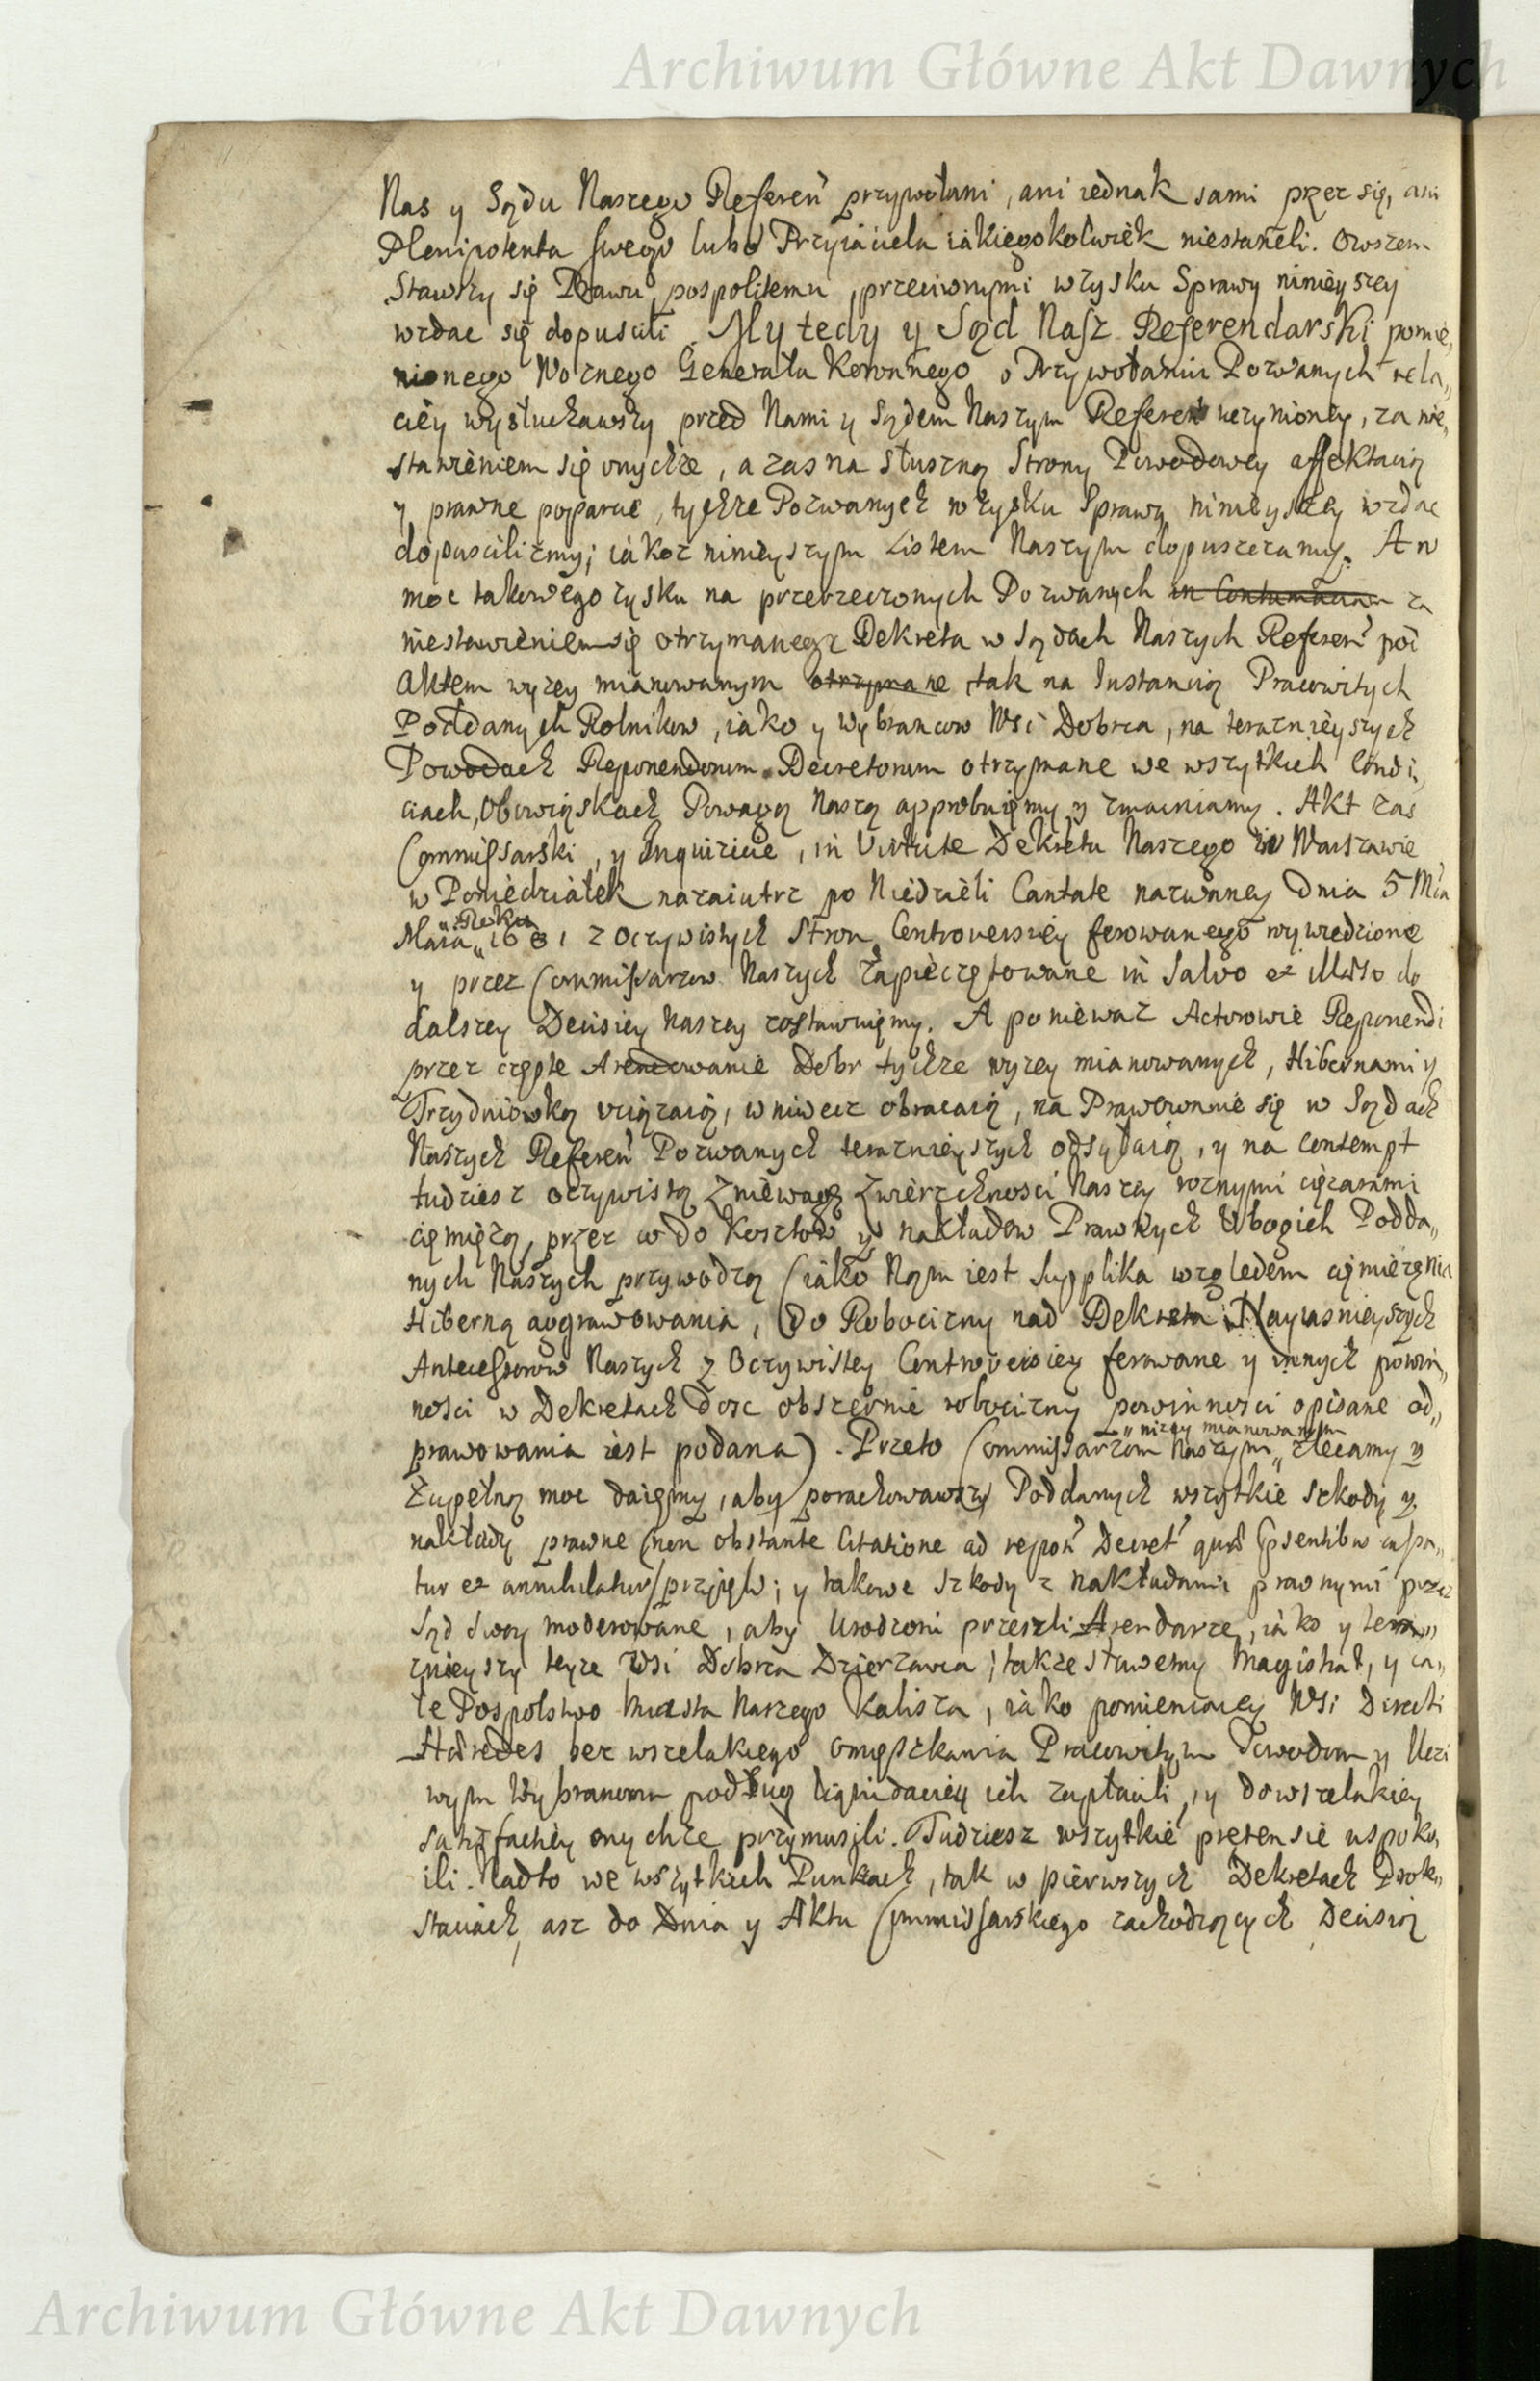 Archiwum Główne Akt Dawnych
Nas y Sądu Naszego Referen̄ przywołani, ani iednak sami przez się, ani
Plenipotenta swego lubo Przyiaciela iakiegokolwiek niestaneli. Owszem
Stawszy się Prawu pospolitemu przeciwnymi wzysku Sprawy ninieyszey
wzdac się dopuscili. My tedy y Sąd Nasz Referendarski pomie„
nionego Woznego Generała Koronnego o Przywołaniu Pozwanych rela„
ciey wysłuchawszy przed Nami y Sądem Naszym Referen̄ uczynioney, za nie„
stawieniem się onychże, a zas na słuszną Strony Powodowey affektacią
y prawne poparcie, tychże Pozwanych w zysku Sprawy ninieyszey wzdac
dopuscilizmy; iakoz ninieyszym Listem Naszym dopuszczamy. A w
moc takowego zysku na przerzeczonych Pozwanych in Contumaciam za
niestawieniem się otrzymanego Dekreta w Sądach Naszych Referen̄ pod
Aktem wyzey mianowanym otrzymane tak na Instancią Pracowitych
Poddanych Rolnikow, iako y Wybrancow Wsi Dobrca, na teraznieyszych
Powodach Reponendorum Decretorum otrzymane we wszytkich Condi„
ciach, Obowiąskach Powagą Naszą approbuięmy y zmacniamy. Akt zas
Commissarski, y Inquizicie, in Virtute Dekretu Naszego w Warszawie
w Poniedziałek nazaiutrz po Niedzieli Cantate nazwaney Dnia 5 Mca
Maia „Roku„ 1681 z Oczywistych Stron Controversiey ferowanego wywiedzione
y przez Commissarzow Naszych zapieczętowane in Salvo et illaeso do
dalszey Decisiey Naszey zostawuięmy. A poniewaz Actorowie Reponendi
przez częste Arendowanie Dobr tychże wyzey mianowanych, Hibernami y
Trzydniowką uciązaią, wniwecz obracaią, na Prawowanie się w Sądach
Naszych Referen̄ Pozwanych teraznieyszych odsyłaią, y na contempt
tudziesz oczywistą Zniewagę Zwierzchnosci Naszey roznymi ciężarami
ciemiężą, przez co do Kosztow y nakładow Prawnych Ubogich Podda„
nych Naszych przywodzą (iako Nam iest Supplika względem ciemiężenia
Hiberną aggrawowania, do Robocizny nad Dekreta Nayiasnieyszych
Antecessorow Naszych z Oczywistey Controversiey ferowane y innych powin„
nosci w Dekretach dosc obszernie robocizny powinnosci opisane od„
prawowania iest podana). Przeto Commissarzom Naszym „nizey mianowanym„ zlecamy y
Zupełną moc daięmy, aby porachowawszy Poddanych wszytkie szkody y
nakłady prawne (non obstante Citatione ad repon̄ Decret̄ quae praesentibus cassa„
tur et annihilatur) przyięli; y takowe szkody z nakładami prawnymi przez
Sąd swoy moderowane, aby Urodzoni przeszli Arendarze, iako y tera„
znieyszy teyze Wsi Dobrca Dzierzawca; takze sławetny Magistrat, y ca„
łe Pospolstwo Miasta Naszego Kalisza, iako pomienioney Wsi Directi
Haeredes bez wszelakiego omięszkania Pracowitym Powodom y Ucci
wym Wybrancom podług liquidaciey ich zapłacili, y do wszelakiey
satisfactiey onychze przymusili. Tudziesz wszytkie pretensie uspoko„
ili. Nadto we wszytkich Punktach, tak w pierwszych Dekretach Prote„
staciach, asz do Dnia y Aktu Commissarskiego zachodzących Decisią
Archiwum Główne Akt Dawnych